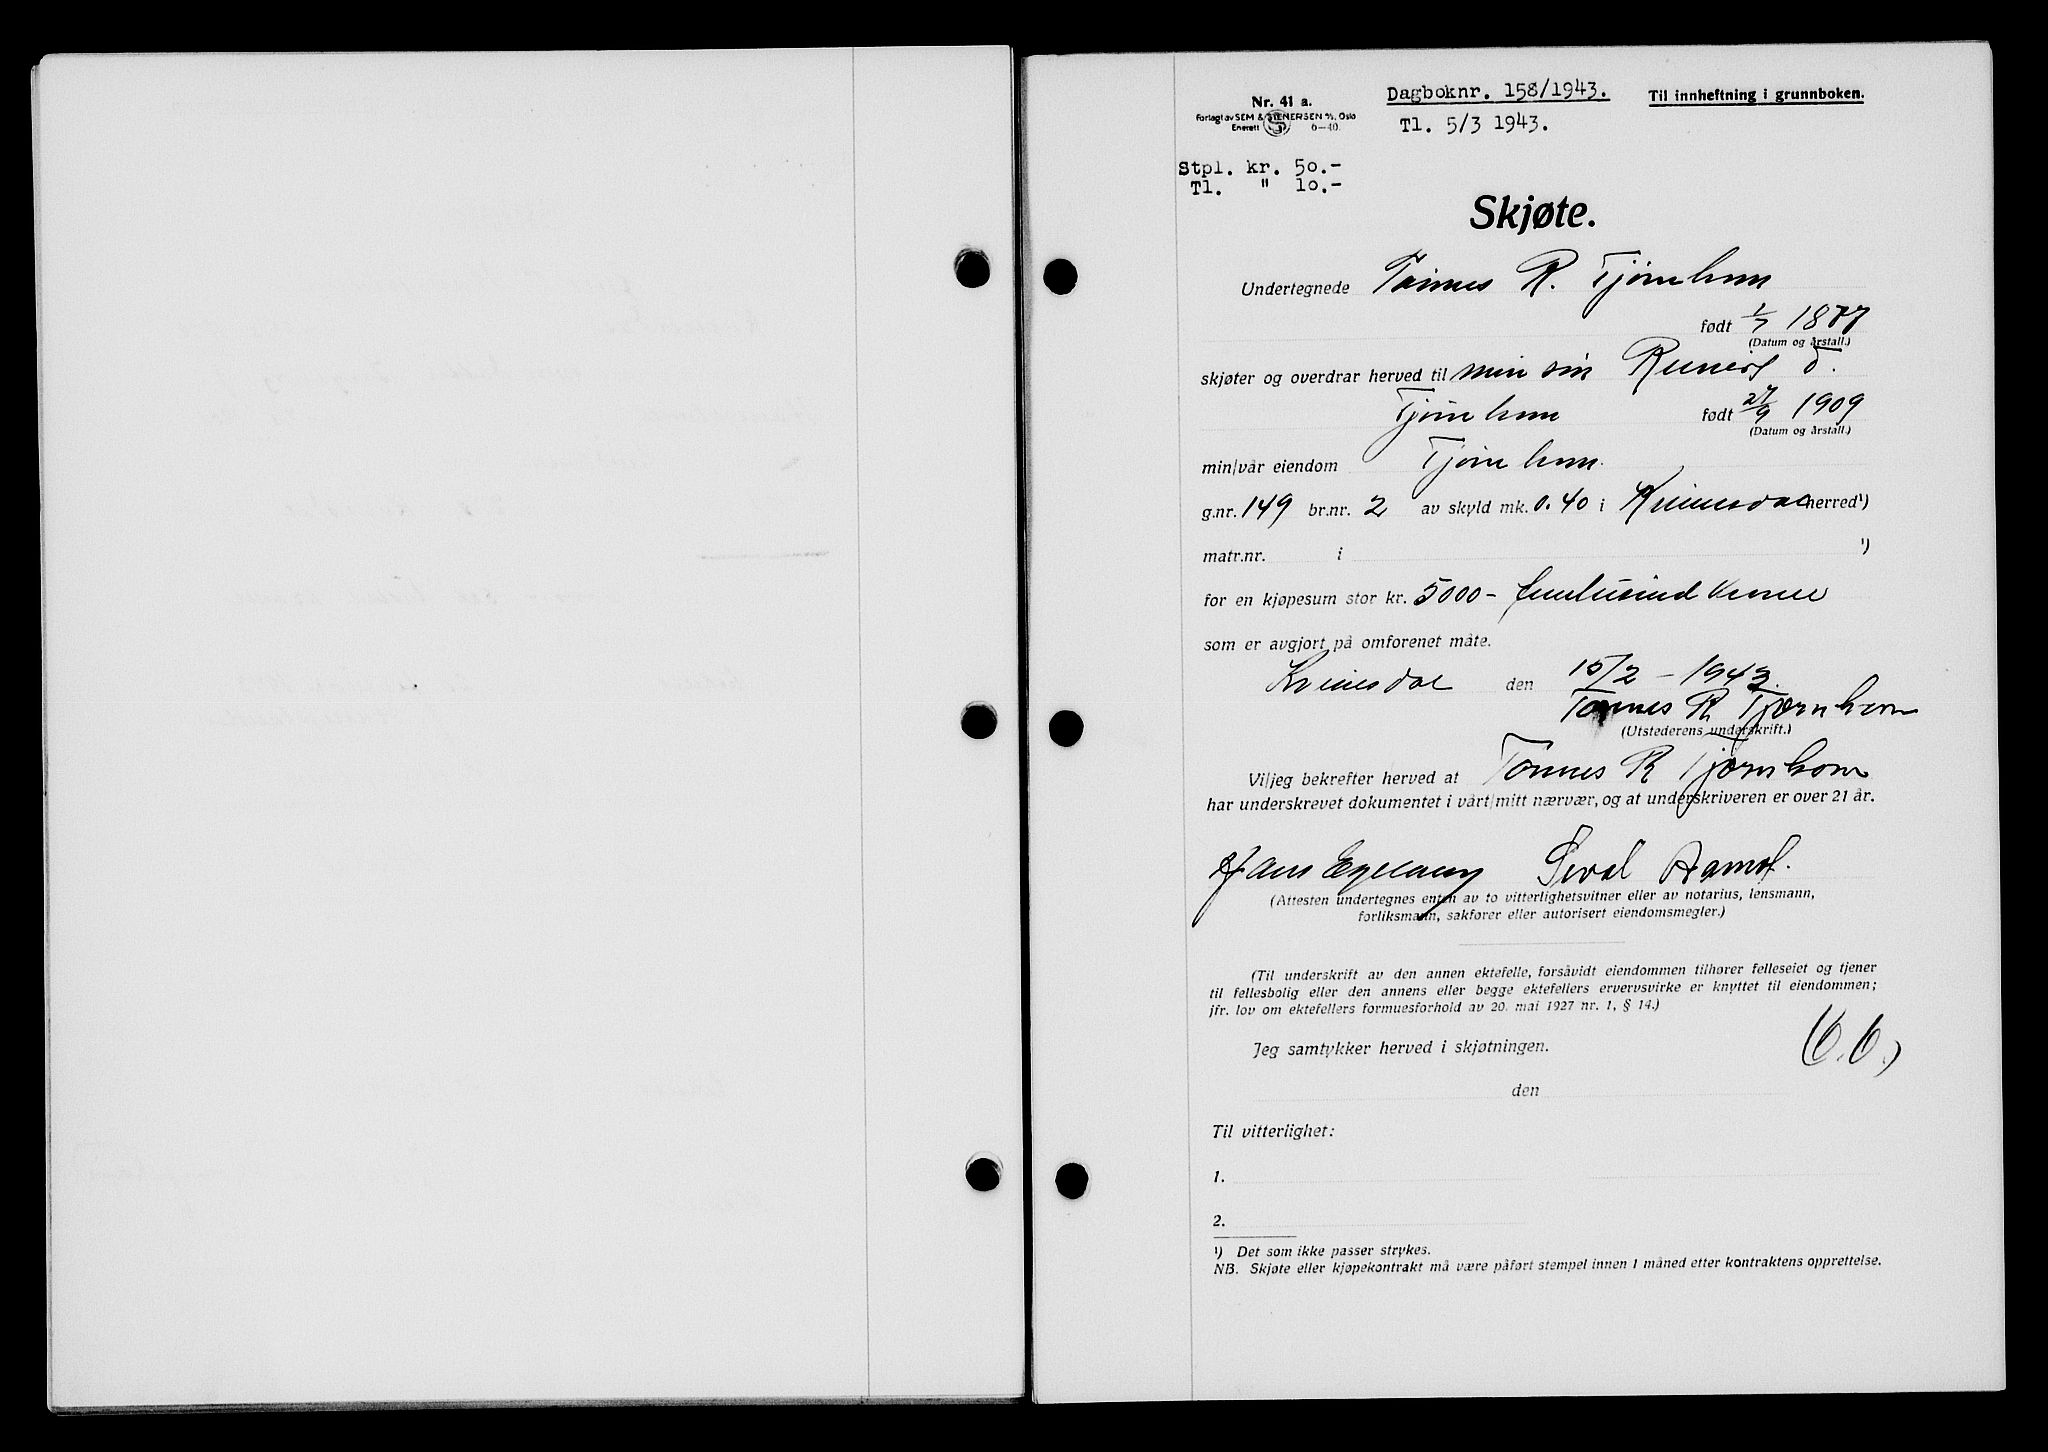 Nr. 41 a.
Forlagt av SEM & STENERSEN A/S, Oslo
Enerett S 6-40.
Dagboknr. 158/1943.
Tl. 5/3 1943.
Til innheftning i grunnboken.
Stpl. kr. 50.-
Tl. " 10.-
Skjøte.
Undertegnede Tønnes R. Tjørnhom
født 1/7 1877
(Datum og årstall.)
skjøter og overdrar herved til min søn
Tjørnhom født 27/9 1909
(Datum og årstall.)
min/vår eiendom Tjørnhom.
g.nr. 149 br.nr. 2 av skyld mk. 0.40 i Kvinesdal herred¹)
matr.nr. i ¹)
for en kjøpesum stor kr. 5000 - femtusind kroner
som er avgjort på omforenet måte.
Kvinesdal den 15/2 - 1943.
Tønnes R Tjørnhom
(Utstederens underskrift.)
Vi/jeg bekrefter herved at Tønnes R Tjørnhom
har underskrevet dokumentet i vårt/mitt nærvær, og at underskriveren er over 21 år.
Hans Egeland Sival
(Attesten undertegnes enten av to vitterlighetsvitner eller av notarius, lensmann,
forliksmann, sakfører eller autorisert eiendomsmegler.)
(Til underskrift av den annen ektefelle, forsåvidt eiendommen tilhører felleseiet og tjener
til fellesbolig eller den annens eller begge ektefellers ervervsvirke er knyttet til eiendommen;
jfr. lov om ektefellers formuesforhold av 20. mai 1927 nr. 1, § 14.)
Jeg samtykker herved i skjøtningen.
den
Til vitterlighet:
1.
2.
¹) Det som ikke passer strykes.
NB. Skjøte eller kjøpekontrakt må være påført stempel innen 1 måned etter kontraktens opprettelse.